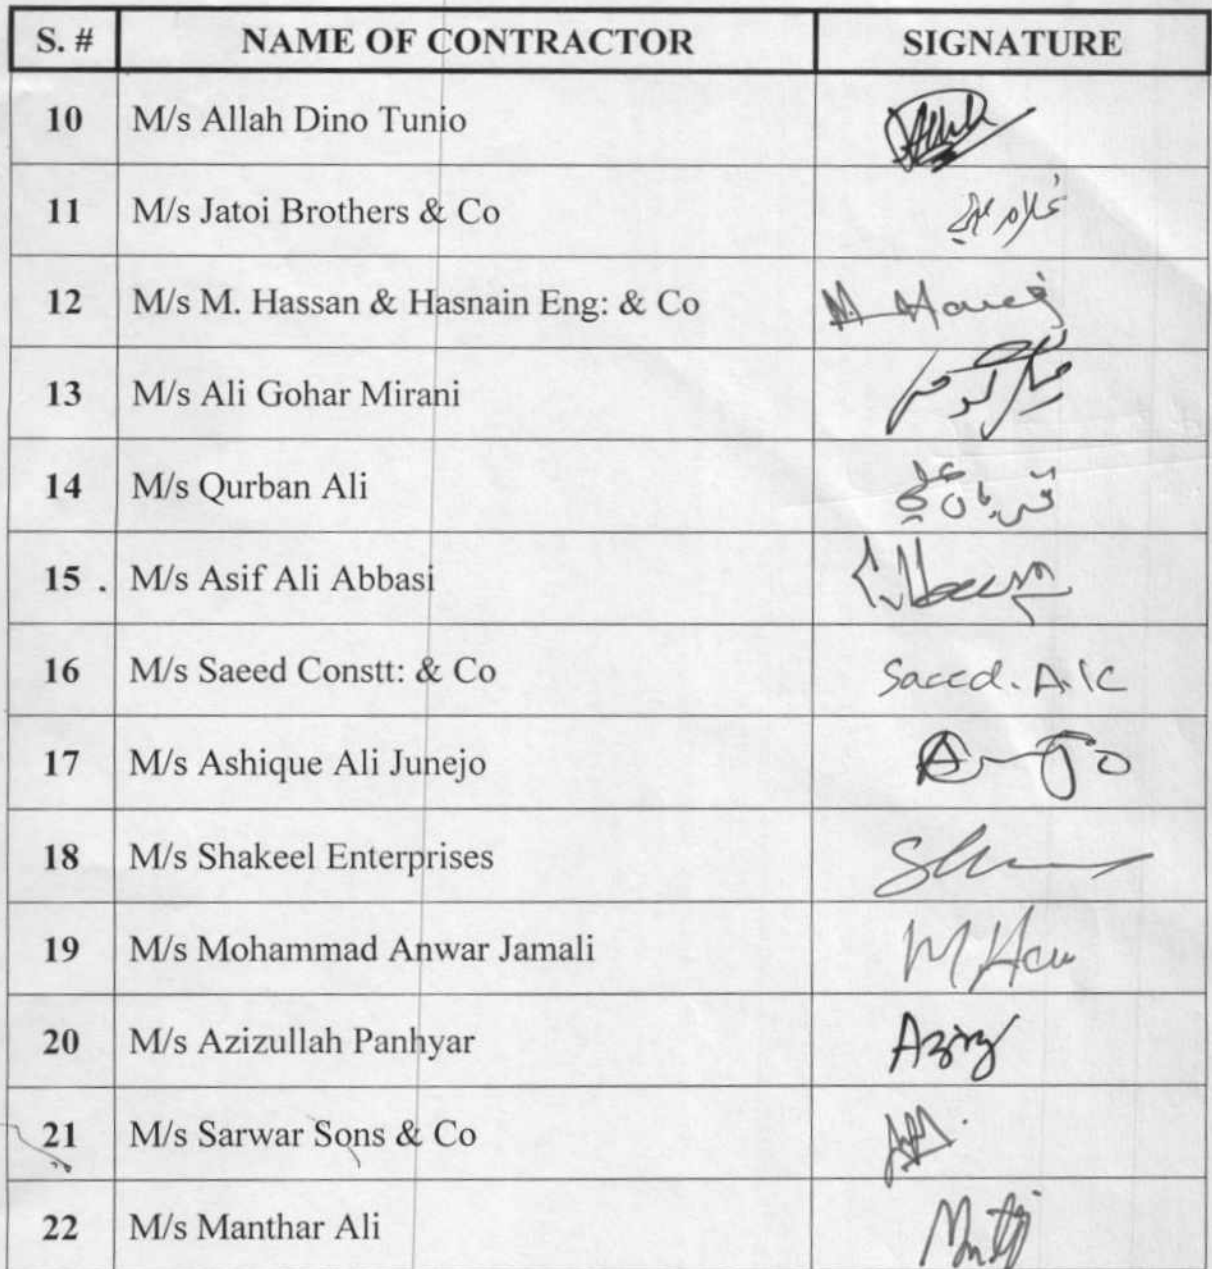 S. # NAME OF CONTRACTOR SIGNATURE
10 M/s Allah Dino Tunio
11 M/s Jatoi Brothers & Co غلام
12 M/s M. Hassan & Hasnain Eng: & Co M.
13 M/s Ali Gohar Mirani
14 M/s Qurban Ali قربان علي
15 . M/s Asif Ali Abbasi
16 M/s Saeed Constt: & Co Saeed. A/C
17 M/s Ashique Ali Junejo
18 M/s Shakeel Enterprises
19 M/s Mohammad Anwar Jamali
20 M/s Azizullah Panhyar Aziz
21 M/s Sarwar Sons & Co
22 M/s Manthar Ali